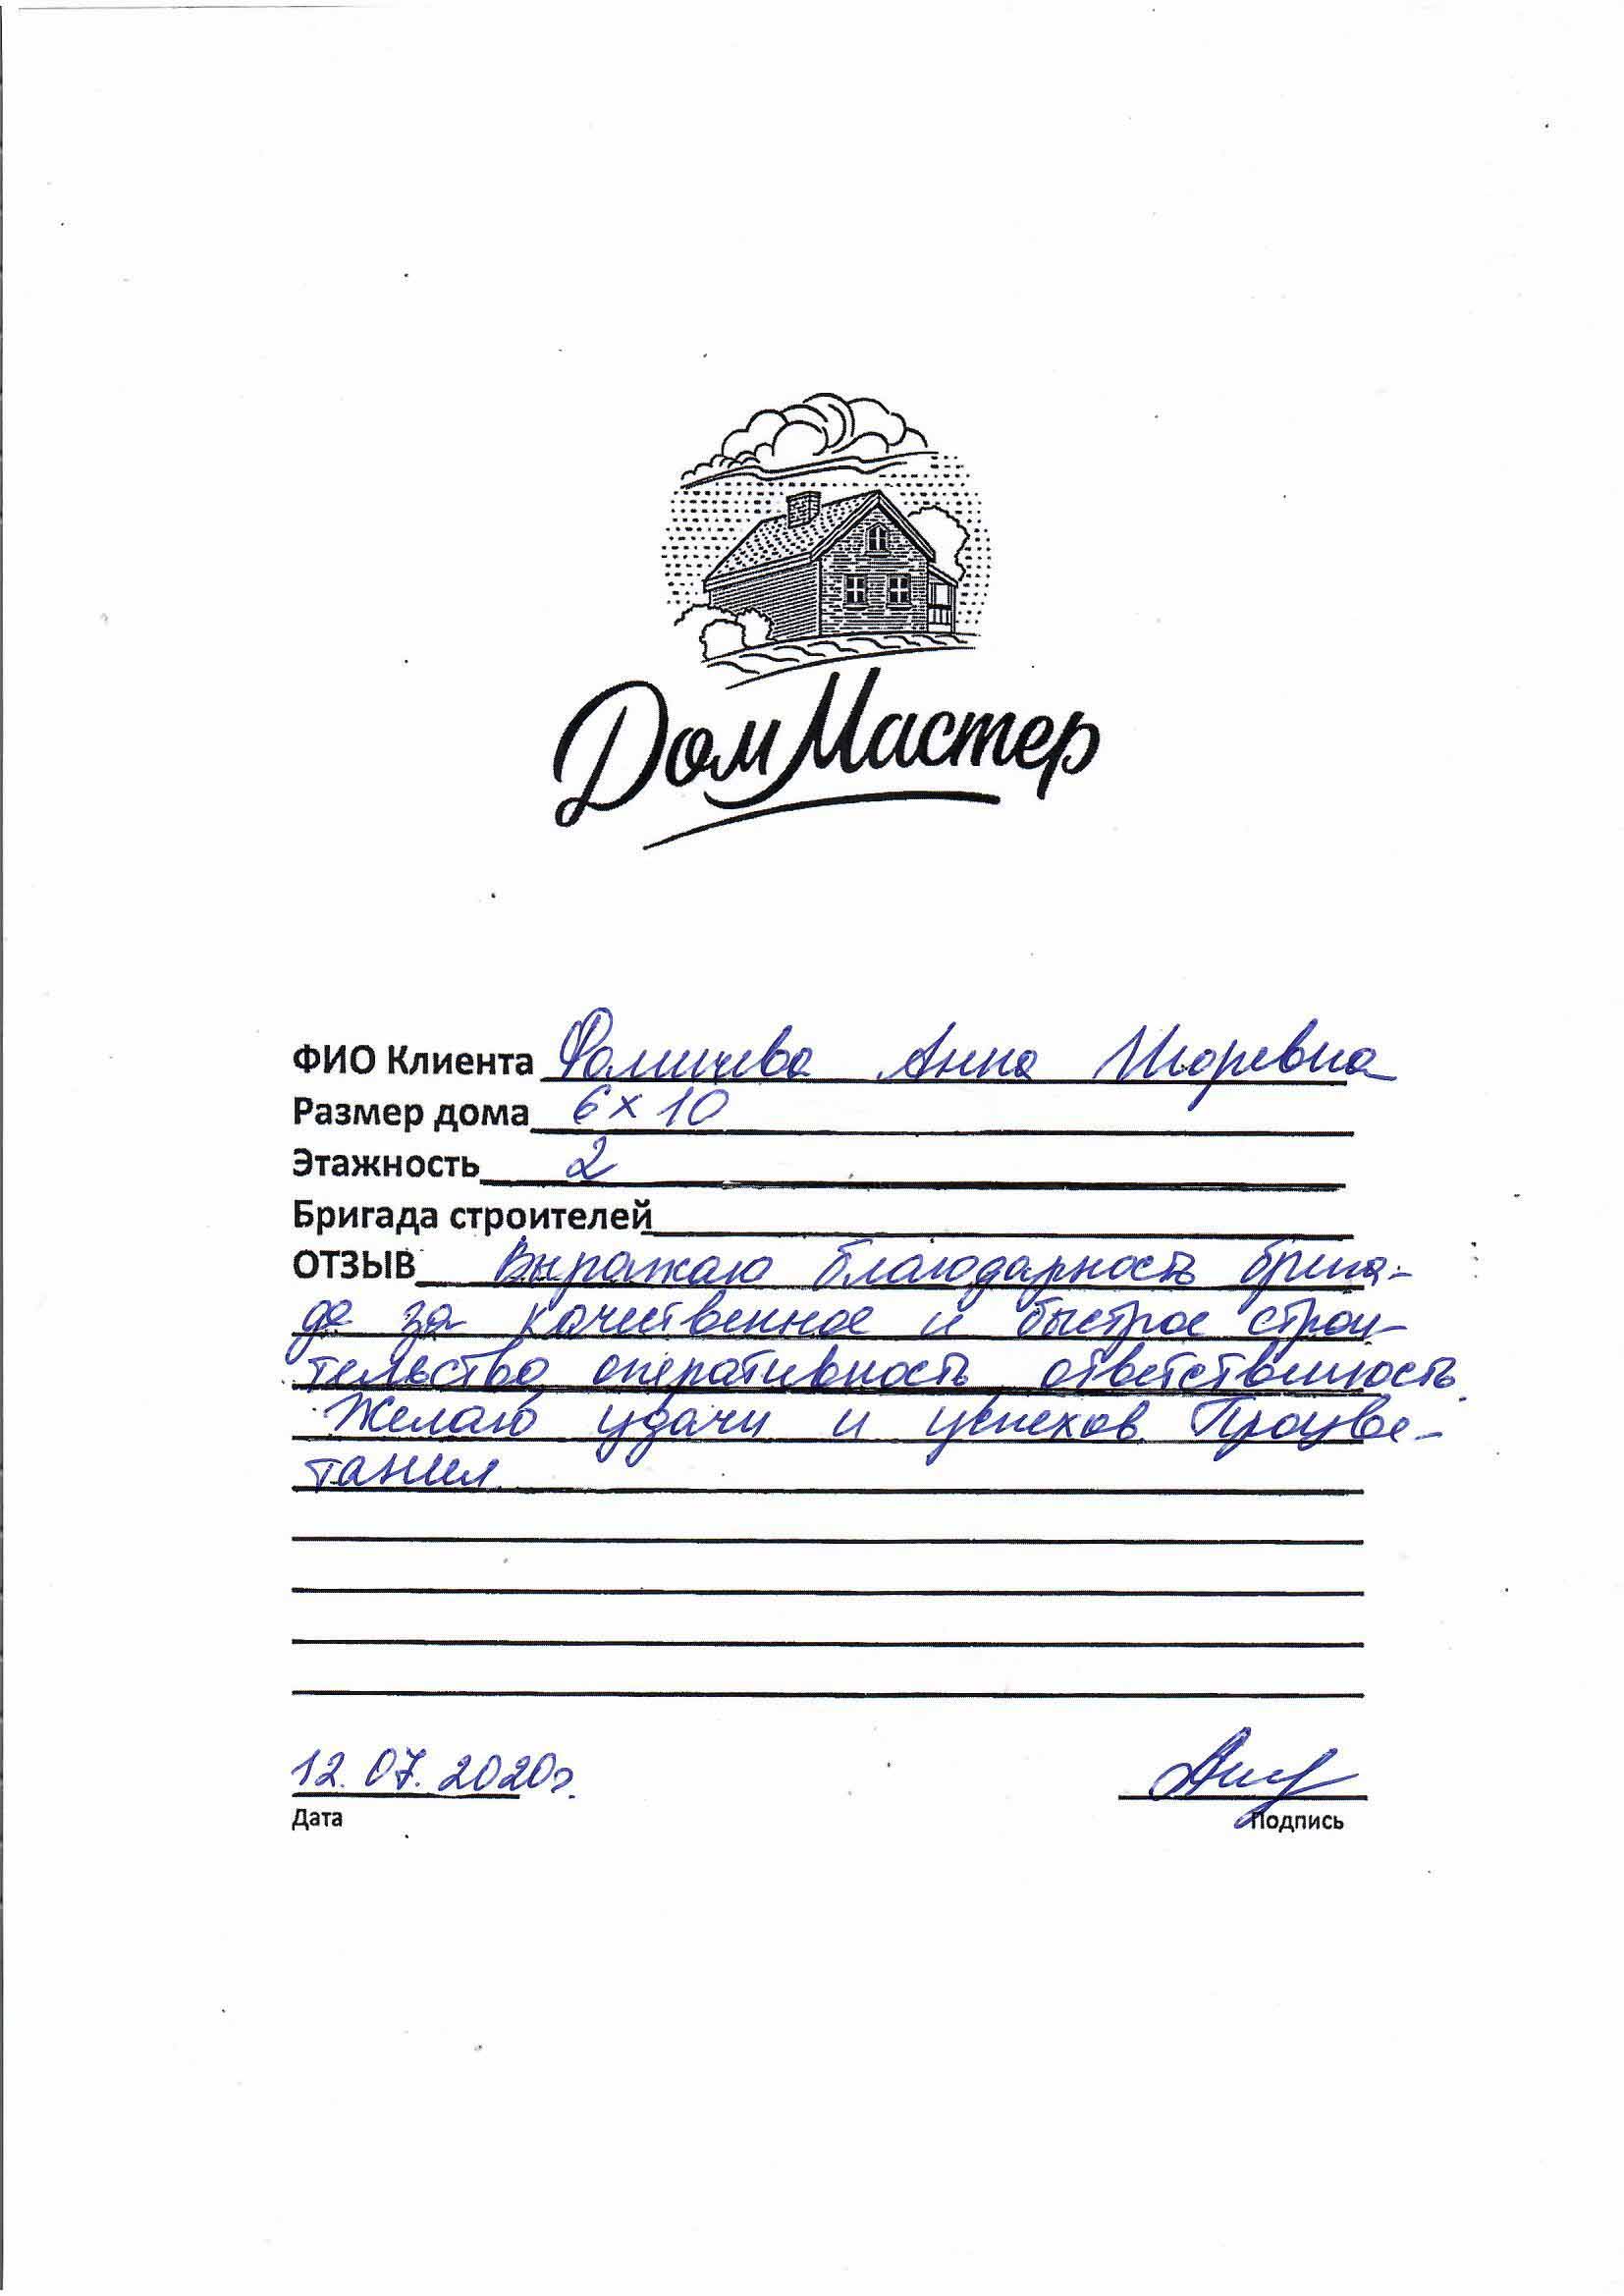 ДомМастер
ФИО Клиента Фомичева Анна Игоревна
Размер дома 6 х 10
Этажность 2
Бригада строителей
ОТЗЫВ Выражаю благодарность брига-
де за качественное и быстрое строи-
тельство оперативность ответственность.
Желаю удачи и успехов. Процве-
тания.
12.07.2020г.
Дата
Подпись